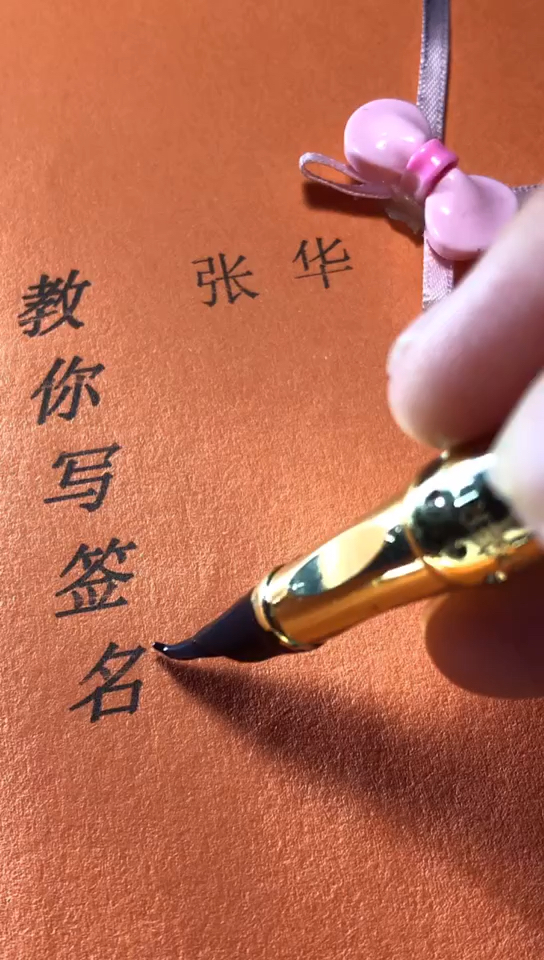 教你写签名
张华